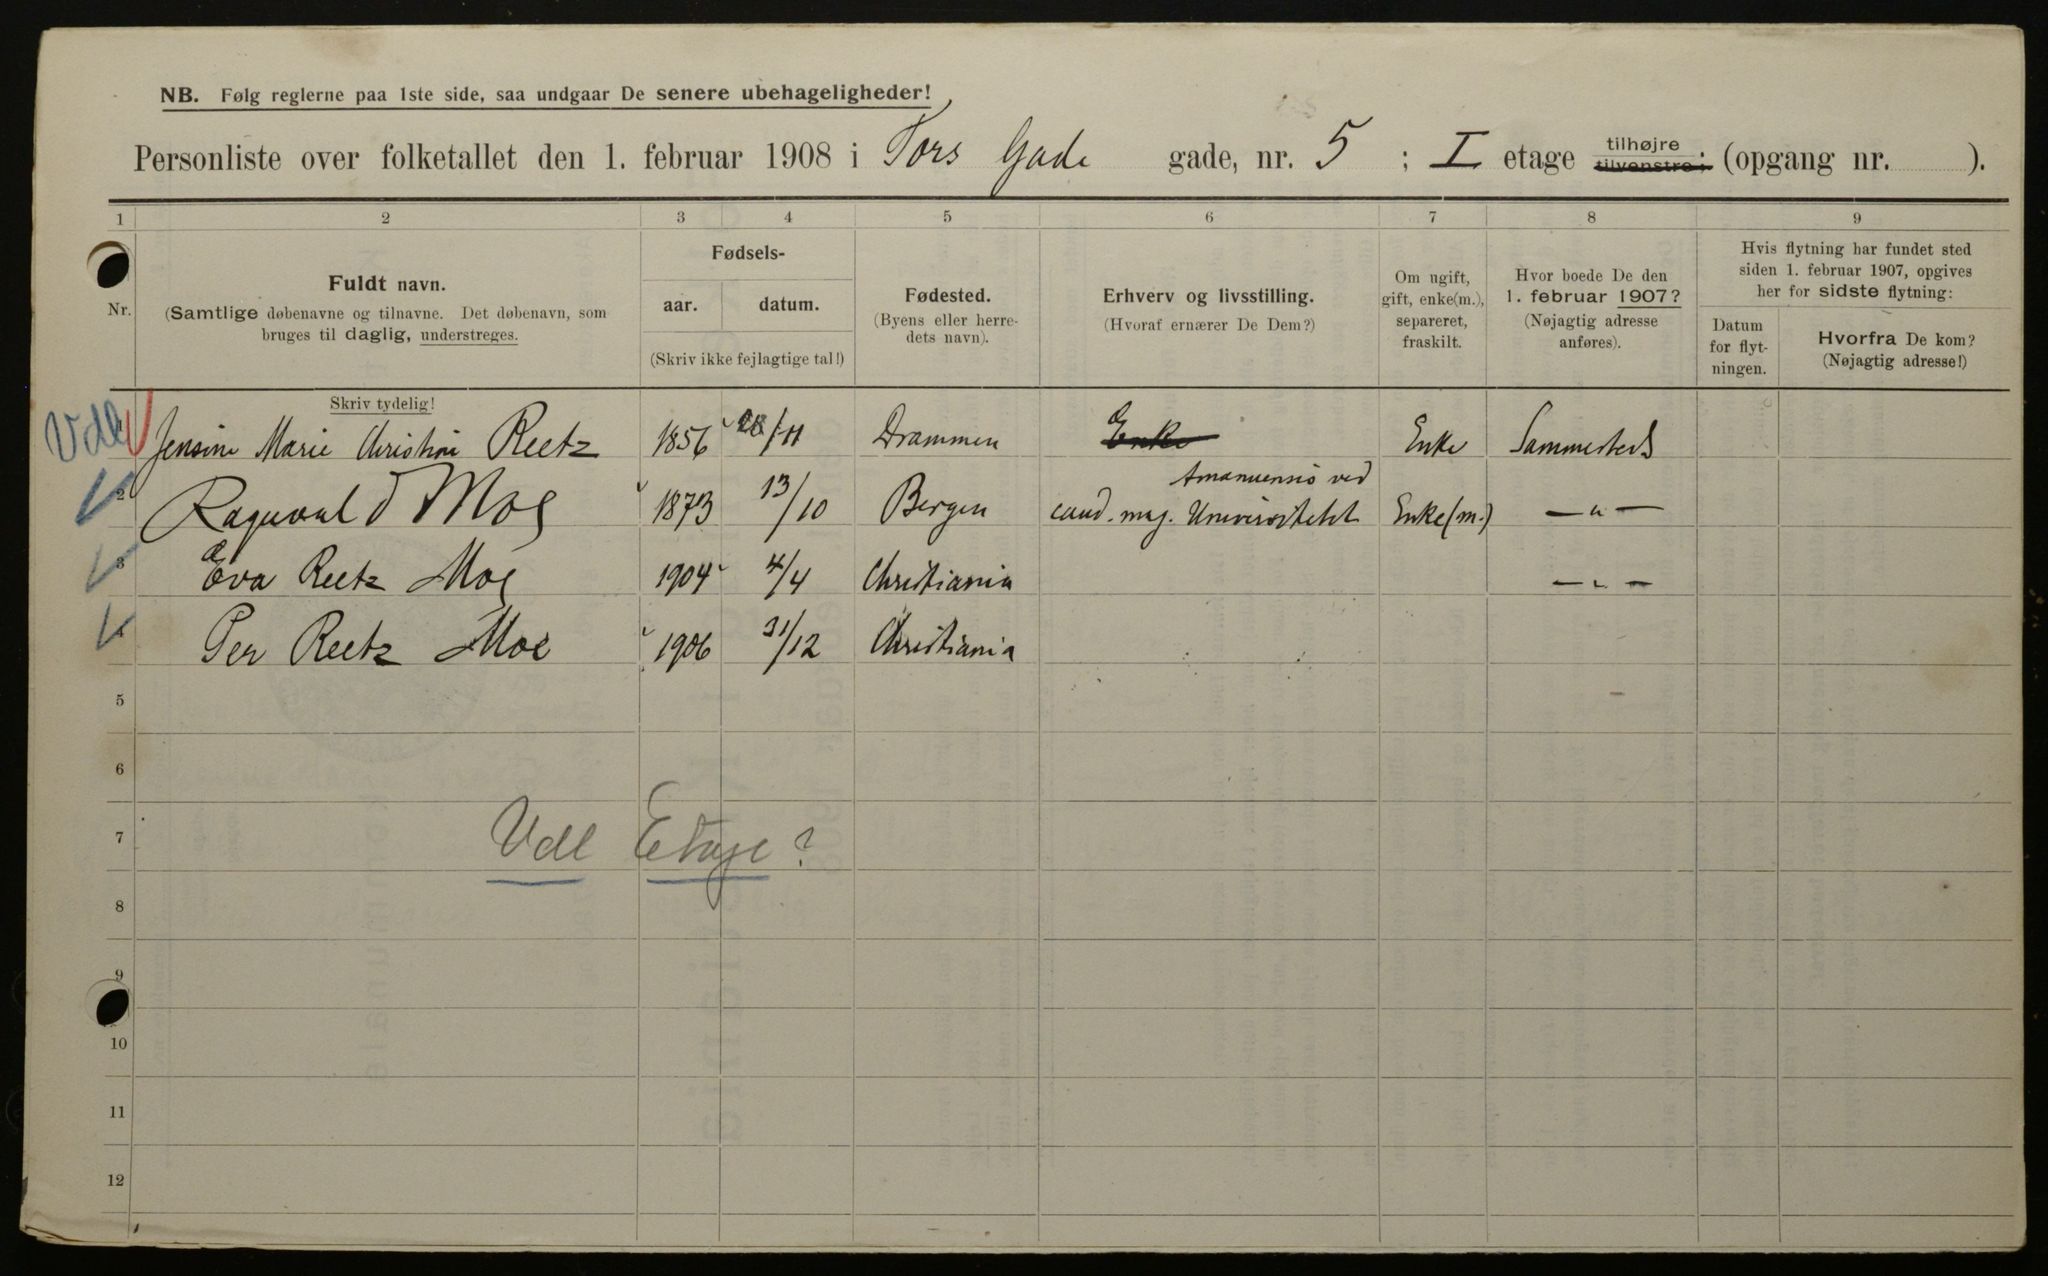 NB. Følg reglerne paa 1ste side, saa undgaar De senere ubehageligheder!
Personliste over folketallet den 1. februar 1908 i Tors Gade gade, nr. 5 ; I etage tilhøjre tilvenstre; (opgang nr. ).
1 2 3 4 5 6 7 8 9
Nr.
Fuldt navn.
(Samtlige døbenavne og tilnavne. Det døbenavn, som
bruges til daglig, understreges.
Skriv tydelig!
Fødsels-
aar. datum.
(Skriv ikke fejlagtige tal!)
Fødested.
(Byens eller herre-
dets navn).
Erhverv og livsstilling.
(Hvoraf ernærer De Dem?)
Om ugift,
gift, enke(m.),
separeret,
fraskilt.
Hvor boede De den
1. februar 1907?
(Nøjagtig adresse
anføres).
Hvis flytning har fundet sted
siden 1. februar 1907, opgives
her for sidste flytning:
Datum
for flyt-
ningen.
Hvorfra De kom?
(Nøjagtig adresse!)
Vdl 1 Jensine Marie Christine Reetz 1856 28/11 Drammen Enke Enke Sammesteds
2 Ragnvald Moe 1873 13/10 Bergen cand. mag. Amanuensis ved Universitetet Enke(m.) — " —
3 Eva Reetz Moe 1904 4/4 Christiania — " —
4 Per Reetz Moe 1906 31/12 Christiania
5
6
7 Vdl Etage?
8
9
10
11
12